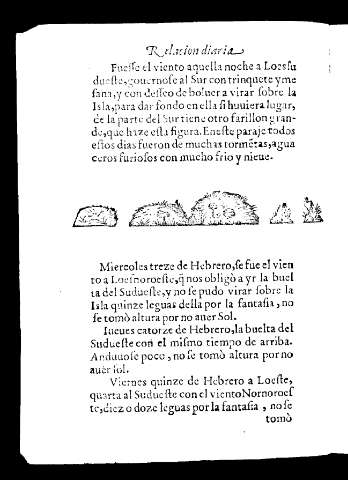 Relacion diaria
Fuesse el viento aquella noche a Loessu
dueste, gouernose al Sur con trinquete y me
sana, y con desseo de boluer a virar sobre la
Isla, para dar fondo en ella si huuiera lugar,
de la parte del Sur tiene otro farillon gran-
de, que haze esta figura. En este paraje todos
estos dias fueron de muchas tormẽtas, agua
ceros furiosos con mucho frio y nieue.
Miercoles treze de Hebrero, se fue el vien
to a Loesnoroeste, q̃ nos obligò a yr la buel
ta del Sudueste, y no se pudo virar sobre la
Isla quinze leguas della por la fantasia, no
se tomò altura por no auer Sol.
Iueues catorze de Hebrero, la buelta del
Sudueste con el mismo tiempo de arriba.
Anduuose poco, no se tomò altura por no
auer sol.
Viernes quinze de Hebrero a Loeste,
quarta al Sudueste con el viento Nornoroes
te, diez o doze leguas por la fantasia, no se
tomò